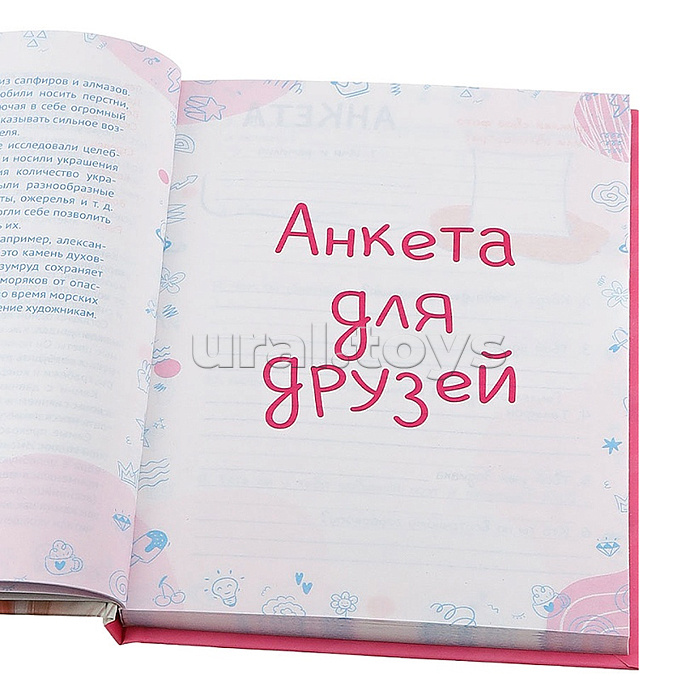 из сапфиров и алмазов,
обили носить перстни,
ючая в себе огромный
казывать сильное воз-
еля.
е исследовали целеб-
и носили украшения
ия количество укра-
ыли разнообразные
ты, ожерелья и т. д.
огли себе позволить
ь их.
апример, алексан-
это камень духов-
зумруд сохраняет
моряков от опас-
о время морских
ение художникам.
АНКЕТА
Анкета
для
друзей
ural.toys